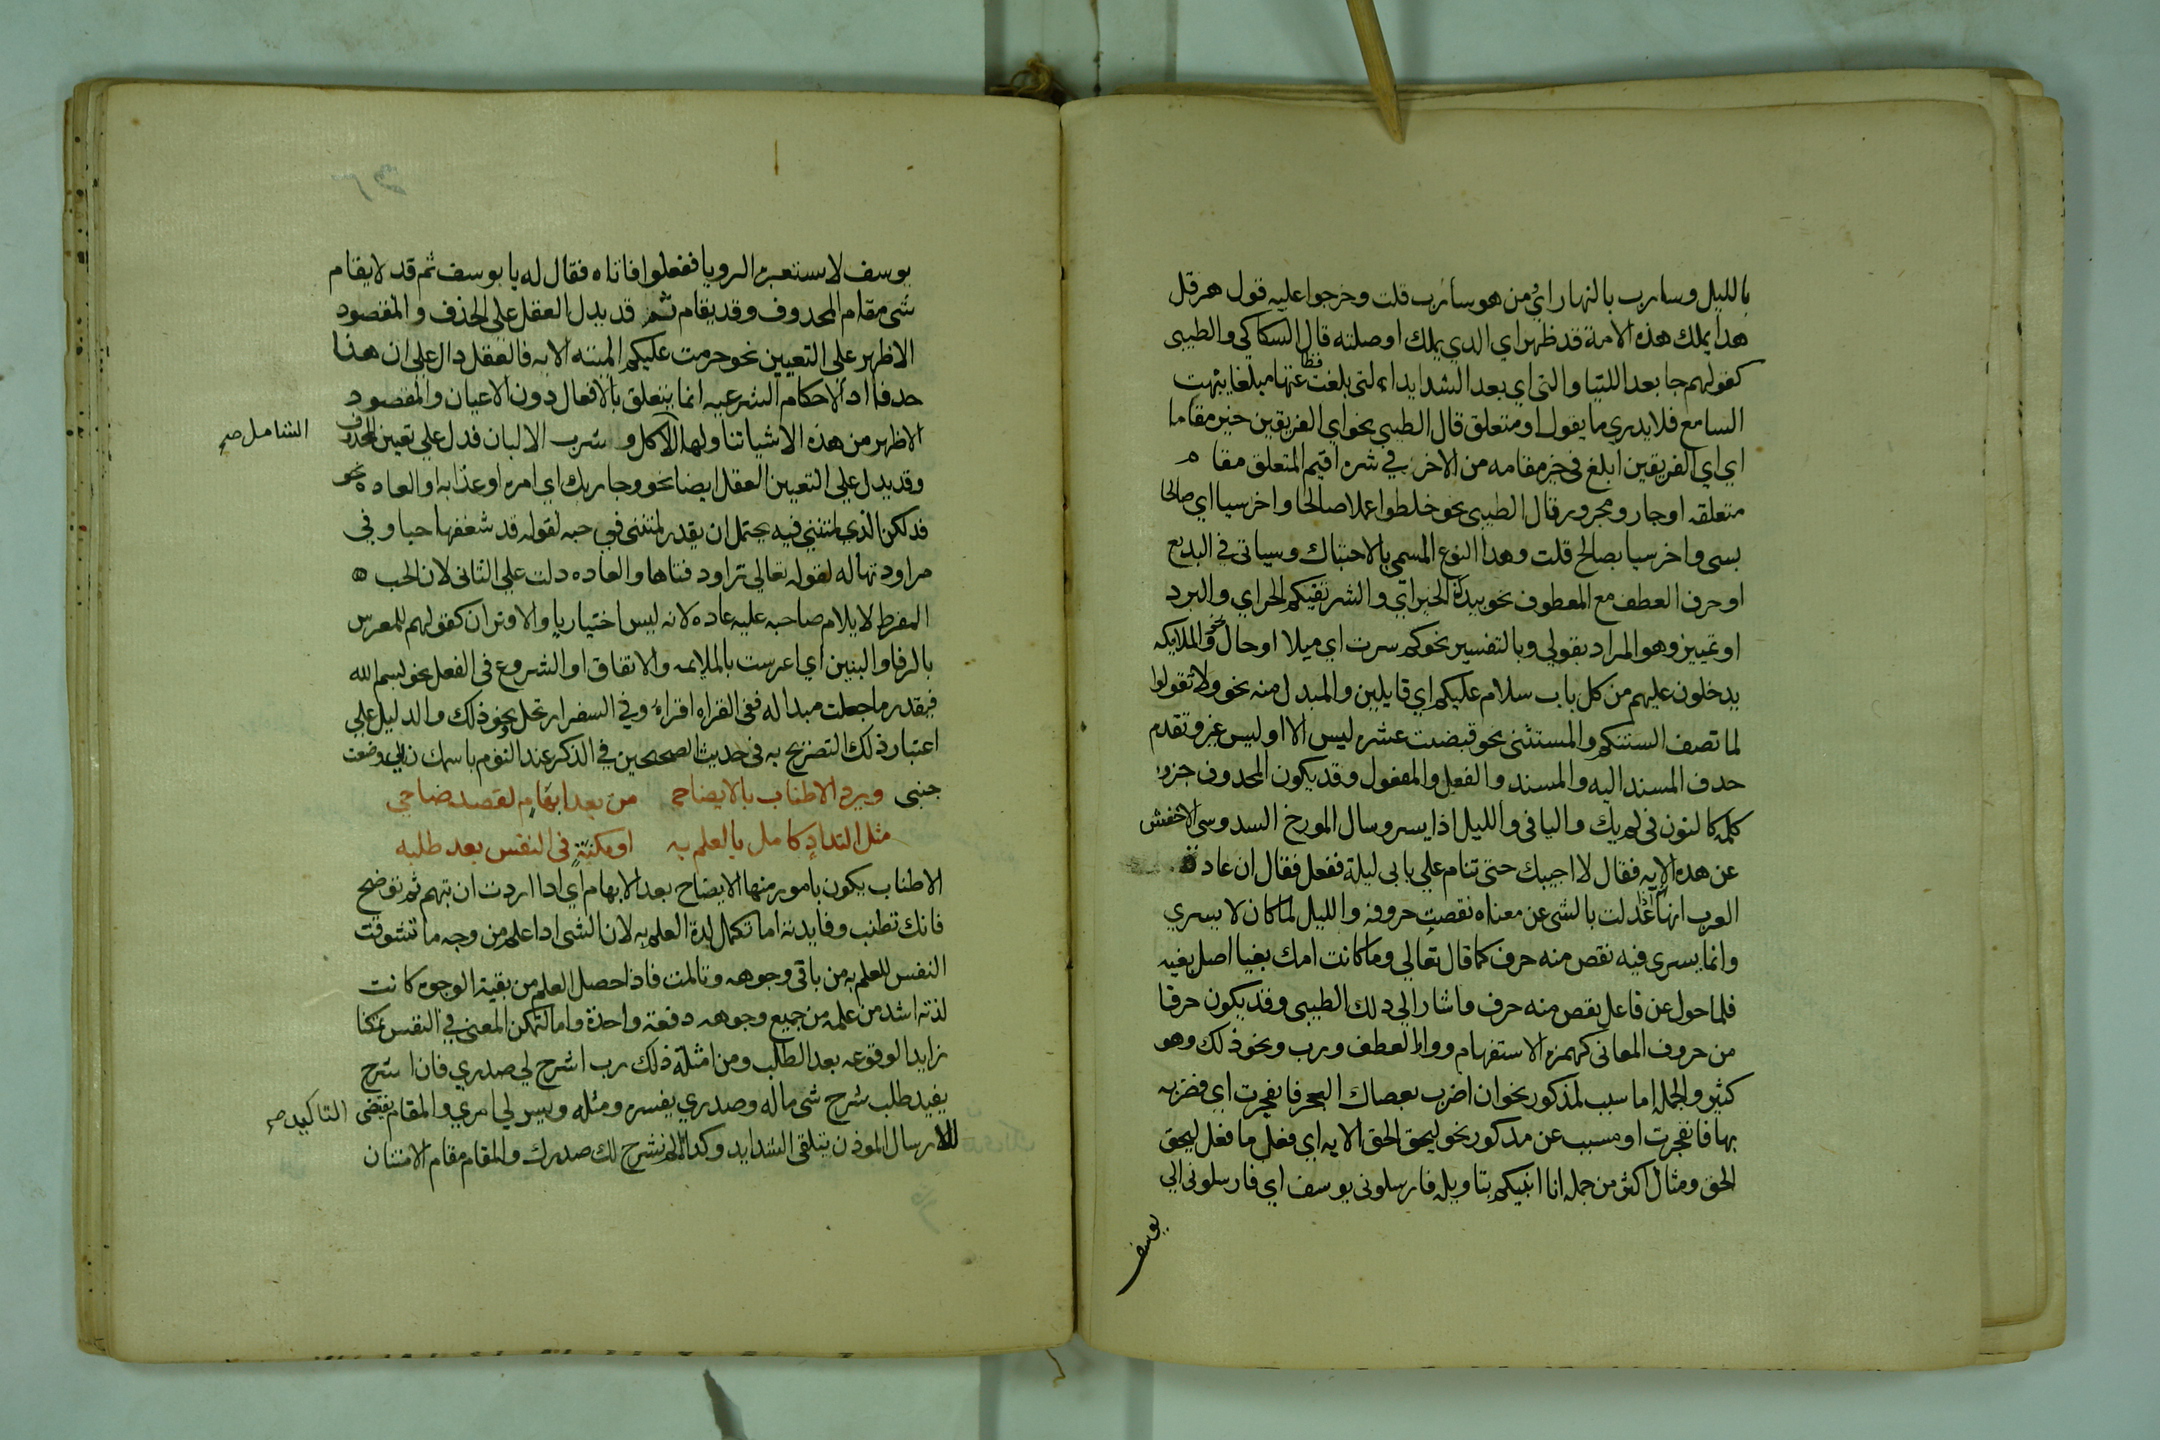 بالليل وسارب بالنهار اي ومن هو سارب قلت وخرجوا عليه قول هرقل
هدا يملك هذه الامة قد ظهر اي الدي يملك او صلته قال السكاكي والطيبي
كقولهم جا بعد اللتيا والتي اي بعد الشدايد التي بلغت فظاعتها مبلغا يبهت
السامع فلا يدري ما يقول او متعلق قال الطيبي نحو اي الفريقين خير مقاما
اي اي الفريقين ابلغ في خير مقامه من الاخر في شره اقيم المتعلق مقام
متعلقه او جار ومجرور قال الطيبي نحو خلطوا عملا صالحا واخر سيا اي صالحا
بسي واخر سيا بصالح قلت وهدا النوع المسمي بالاحتباك وسياتي في البديع
او حرف العطف مع المعطوف نحو بيدك الخير اي والشر تقيكم الحر اي والبرد
او تمييز وهو المراد بقولي وبالتفسير نحو كم سرت اي ميلا او حال نحو والملايكه
يدخلون عليهم من كل باب سلام عليكم اي قايلين والمبدل منه نحو ولا تقولوا
لما تصف السنتكم والمستثني نحو قبضت عشره ليس الا او ليس غير وتقدم
حدف المسند اليه والمسند والفعل والمفعول وقد يكون المحدوف جزو
كلمه كالنون في لم يك واليا في والليل اذا يسر وسال المورخ السدوسي الاخفش
عن هده الايه فقال لا اجيبك حتي تنام علي بابي ليلة ففعل فقال ان عادة
العرب انها اذا عدلت بالشي عن معناه نقصت حروفه والليل لما كان لا يسري
وانما يسري فيه نقص منه حرف كما قال تعالي وما كانت امك بغيا اصل بغيه
فلما حول عن فاعل نقص منه حرف واشار الي دلك الطيبي وقد يكون حرفا
من حروف المعاني كهمزه الاستفهام وواو العطف ورب ونحو ذلك وهو
كثير والجمله اما سبب لمذكور نحو ان اضرب بعصاك البحر فانفجرت اي فضربه
بها فانفجرت او مسبب عن مدكور نحو ليحق الحق الايه اي فعل ما فعل ليحق
الحق ومثال اكثر من جمله انا انبيكم بتاويله فارسلوني يوسف اي فارسلوني الي
يوسف
يوسف لاستعبره الرويا ففعلوا فاتاه فقال له يا يوسف ثم قد لا يقام
شي مقام المحدوف وقد يقام ثم قد يدل العقل علي الحذف والمقصود
الاظهر علي التعيين نحو حرمت عليكم الميته الايه فالعقل دال علي ان هنا
حدفا اد الاحكام الشرعيه انما يتعلق بالافعال دون الاعيان والمقصود
الاظهر من هذه الاشيا تناولها الاكل و شرب الالبان فدل علي تعيين المحدوف
الشامل صح
وقد يدل علي التعيين العقل ايضا نحو وجا ربك اي امره او عذابه او العاده نحو
فدلكن الذي لمتنني فيه يحتمل ان يقدر لمتنني في حبه لقوله قد شغفها حبا وفي
مراودتها له لقوله تعالي تراود فتاها والعاده دلت علي الثاني لان الحب
المفرط لا يلام صاحبه عليه عاده لانه ليس اختياريا والاقتران كقولهم للمعرس
بالرفا والبنين اي اعرست بالملايمه والاتفاق او الشروع في الفعل نحو بسم الله
فيقدر ما جعلت مبدا له ففي القراه اقراء وفي السفر ارتحل ونحو ذلك والدليل علي
اعتبار ذلك التصريح به في حديث الصحيحين في الذكر عند النوم باسمك ربي وضعت
جنبي ويرد الاطناب بالايضاح من بعد ابهام لقصد ضاحي
مثل التداد كامل بالعلم به او مكنة في النفس بعد طلبه
الاطناب يكون بامور منها الايضاح بعد الابهام اي ادا اردت ان تبهم ثم توضح
فانك تطنب وفايدته اما تكمل لدة العلم به لان الشي ادا علم من وجه ما تشوقت
النفس للعلم به من باقي وجوهه وتالمت فاذا حصل العلم من بقية الوجوه كانت
لذته اشد من علمه من جميع وجوهه دفعة واحدة واما لتمكن المعني في النفس تمكنا
زايدا لوقوعه بعد الطلب ومن امثلة ذلك رب اشرح لي صدري فان اشرح
يفيد طلب شرح شي ما له وصدري يفسره ومثله ويسر لي امري والمقام يقتضي التاكيد صح
للارسال الموذن بتلقي الشدايد وكدا الم نشرح لك صدرك والمقام مقام الامتنان